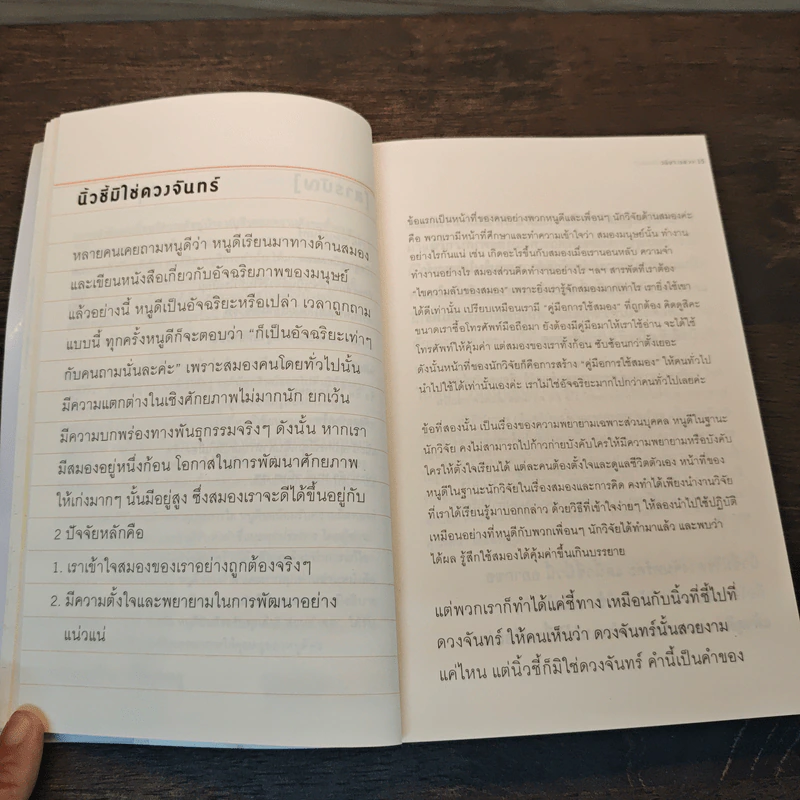 นิ้วชี้มิใช่ดวงจันทร์
หลายคนเคยถามหนูดีว่า หนูดีเรียนมาทางด้านสมอง
และเขียนหนังสือเกี่ยวกับอัจฉริยภาพของมนุษย์
แล้วอย่างนี้ หนูดีเป็นอัจฉริยะหรือเปล่า เวลาถูกถาม
แบบนี้ ทุกครั้งหนูดีก็จะตอบว่า “ก็เป็นอัจฉริยะเท่าๆ
กับคนถามนั่นละค่ะ” เพราะสมองคนโดยทั่วไปนั้น
มีความแตกต่างในเชิงศักยภาพไม่มากนัก ยกเว้น
มีความบกพร่องทางพันธุกรรมจริงๆ ดังนั้น หากเรา
มีสมองอยู่หนึ่งก้อน โอกาสในการพัฒนาศักยภาพ
ให้เก่งมากๆ นั้นมีอยู่สูง ซึ่งสมองเราจะดีได้ขึ้นอยู่กับ
2 ปัจจัยหลักคือ
1. เราเข้าใจสมองของเราอย่างถูกต้องจริงๆ
2. มีความตั้งใจและพยายามในการพัฒนาอย่าง
แน่วแน่
ข้อแรกเป็นหน้าที่ของคนอย่างพวกหนูดีและเพื่อนๆ นักวิจัยด้านสมองค่ะ
คือ พวกเรามีหน้าที่ศึกษาและทำความเข้าใจว่า สมองมนุษย์นั้น ทำงาน
อย่างไรกันแน่ เช่น เกิดอะไรขึ้นกับสมองเมื่อเรานอนหลับ ความจำ
ทำงานอย่างไร สมองส่วนคิดทำงานอย่างไร ฯลฯ สารพัดที่เราต้อง
“ไขความลับของสมอง” เพราะยิ่งเรารู้จักสมองมากเท่าไร เรายิ่งใช้เขา
ได้ดีเท่านั้น เปรียบเหมือนเรามี “คู่มือการใช้สมอง” ที่ถูกต้อง คิดดูสิคะ
ขนาดเราซื้อโทรศัพท์มือถือมา ยังต้องมีคู่มือมาให้เราใช้อ่าน จะได้ใช้
โทรศัพท์ให้คุ้มค่า แต่สมองของเราทั้งก้อน ซับซ้อนกว่าตั้งเยอะ
ดังนั้นหน้าที่ของนักวิจัยก็คือการสร้าง “คู่มือการใช้สมอง” ให้คนทั่วไป
นำไปใช้ได้เท่านั้นเองค่ะ เราไม่ใช่อัจฉริยะมากไปกว่าคนทั่วไปเลยค่ะ
ข้อที่สองนั้น เป็นเรื่องของความพยายามเฉพาะส่วนบุคคล หนูดีในฐานะ
นักวิจัย คงไม่สามารถไปก้าวก่ายบังคับใครให้มีความพยายามหรือบังคับ
ใครให้ตั้งใจเรียนได้ แต่ละคนต้องตั้งใจและดูแลชีวิตตัวเอง หน้าที่ของ
หนูดีในฐานะนักวิจัยในเรื่องสมองและการคิด คงทำได้เพียงนำงานวิจัย
ที่เราได้เรียนรู้มาบอกกล่าว ด้วยวิธีที่เข้าใจง่ายๆ ให้ลองนำไปใช้ปฏิบัติ
เหมือนอย่างที่หนูดีกับพวกเพื่อนๆ นักวิจัยได้ทำมาแล้ว และพบว่า
ได้ผล รู้สึกใช้สมองได้คุ้มค่าขึ้นเกินบรรยาย
แต่พวกเราก็ทำได้แค่ชี้ทาง เหมือนกับนิ้วที่ชี้ไปที่
ดวงจันทร์ ให้คนเห็นว่า ดวงจันทร์นั้นสวยงาม
แค่ไหน แต่นิ้วชี้ก็มิใช่ดวงจันทร์ คำนี้เป็นคำของ